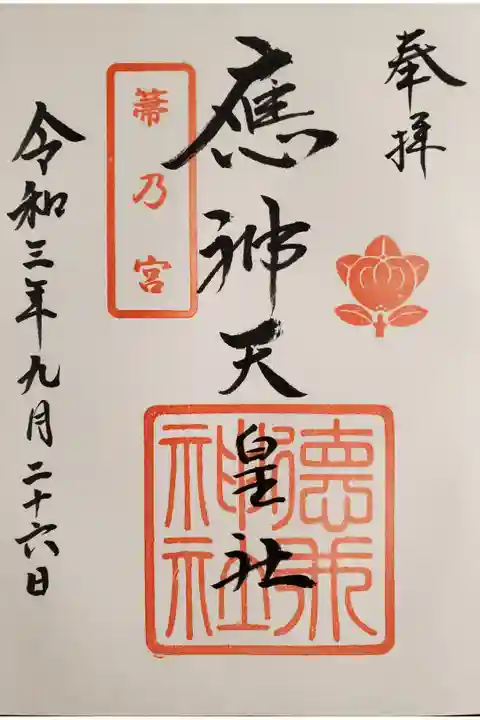 奉拝
應神天皇社
箒乃宮
令和三年九月二十六日
神社